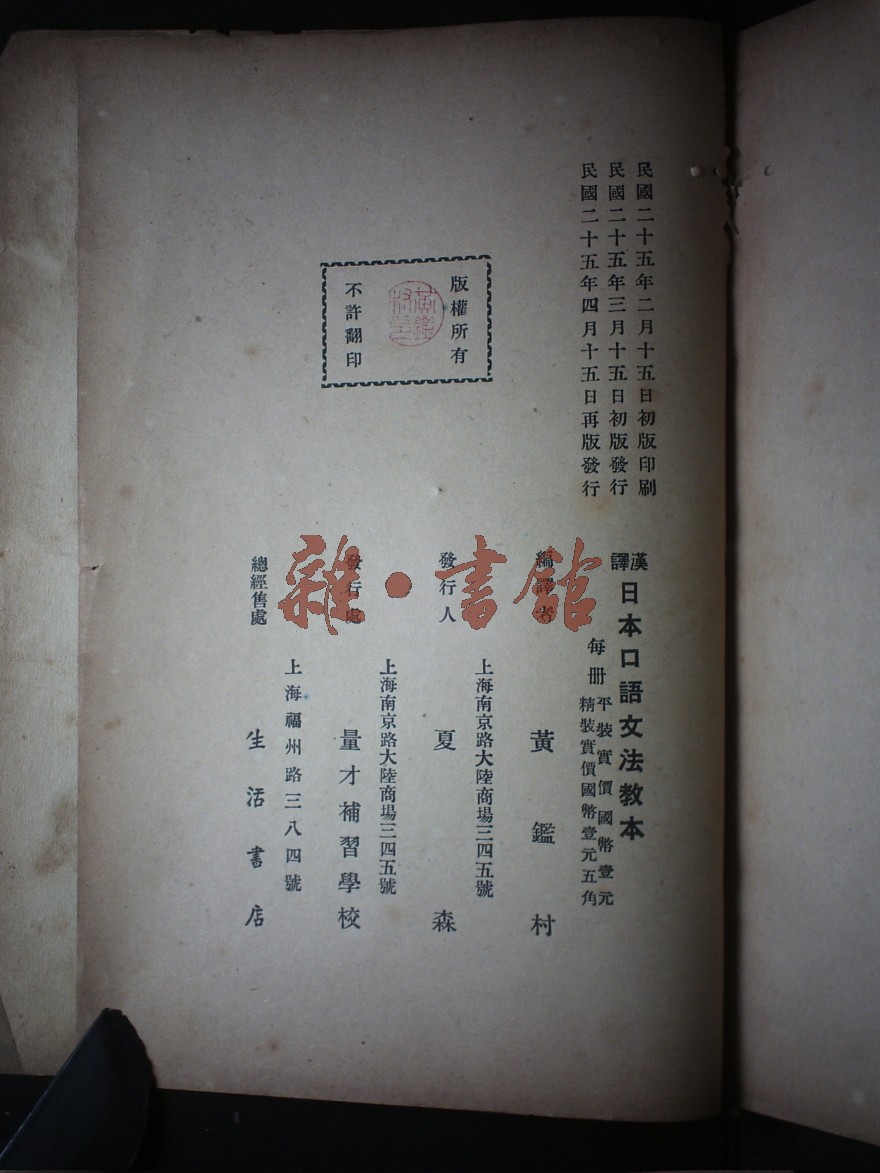 民國二十五年二月十五日初版印刷
民國二十五年三月十五日初版發行
民國二十五年四月十五日再版發行
版權所有
黃鑑村印
不許翻印
漢譯日本口語文法教本
每册
平裝實價國幣壹元
精裝實價國幣壹元五角
編譯者 黃鑑村
上海南京路大陸商場三四五號
發行人 夏森
上海南京路大陸商場三四五號
發行處 量才補習學校
上海福州路三八四號
總經售處 生活書店
雜·書館